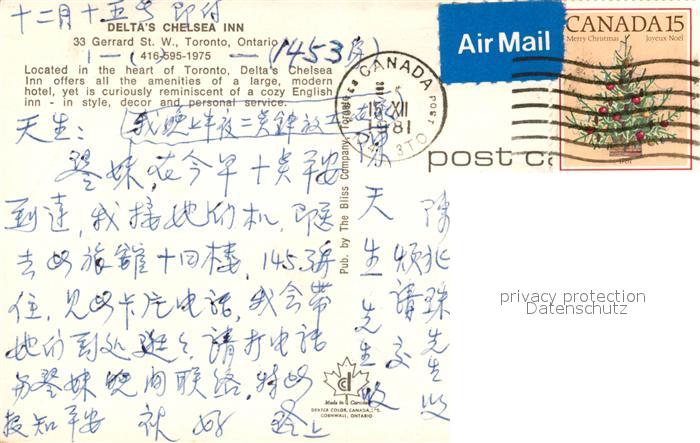 十二月十五号 即付
DELTA'S CHELSEA INN
33 Gerrard St. W., Toronto, Ontario
416-595-1975
(1453房)
Located in the heart of Toronto, Delta's Chelsea
Inn offers all the amenities of a large, modern
hotel, yet is curiously reminiscent of a cozy English
inn - in style, decor and personal service.
天生：(我晚上半夜二点钟放工
琴妹，在今早十点平安
到達，我接她们机，即送
去此旅館十四楼，1453號
住，见此卡片电话，我会带
她们到处逛，請打电话
与琴妹晚间联络，特此
报知平安 祝好
陳天生先生收
煩請交
陳兆珠先生收
Pub. by The Bliss Company, Toronto
Made in Canada
DEXTER COLOR, CANADA, LTD.
CORNWALL, ONTARIO
Air Mail
CANADA 15
Merry Christmas Joyeux Noël
1781
CANADA
15 XII
1981
post ca
privacy protection
Datenschutz